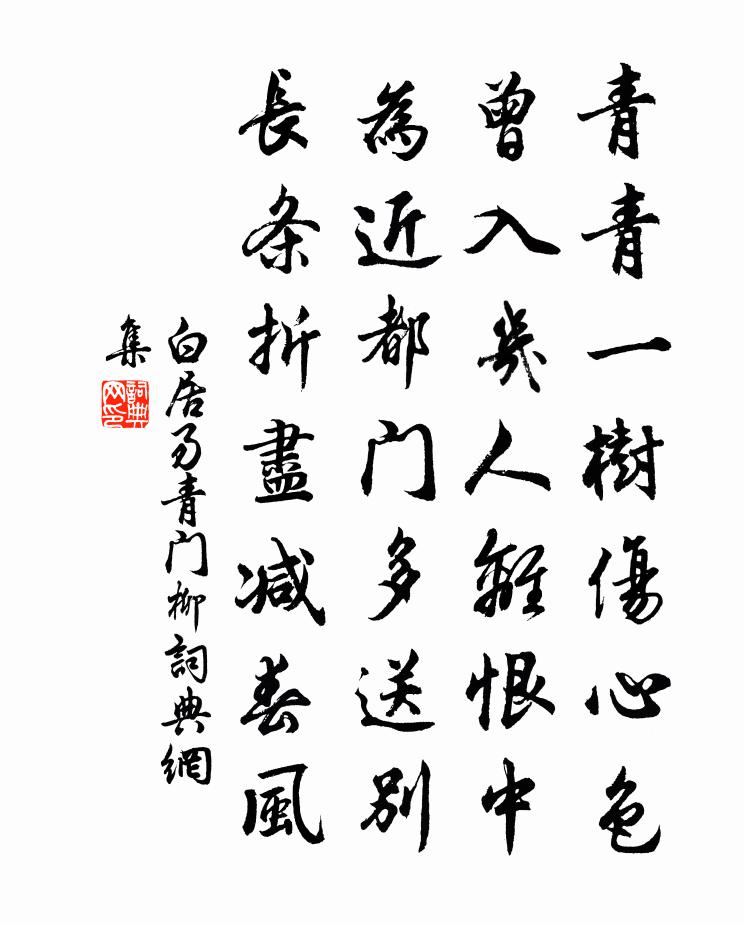 青青一樹傷心色
曾入幾人離恨中
為近都门多送别
長条折盡減春風
白居易青门柳詞典網
集
詞典网印